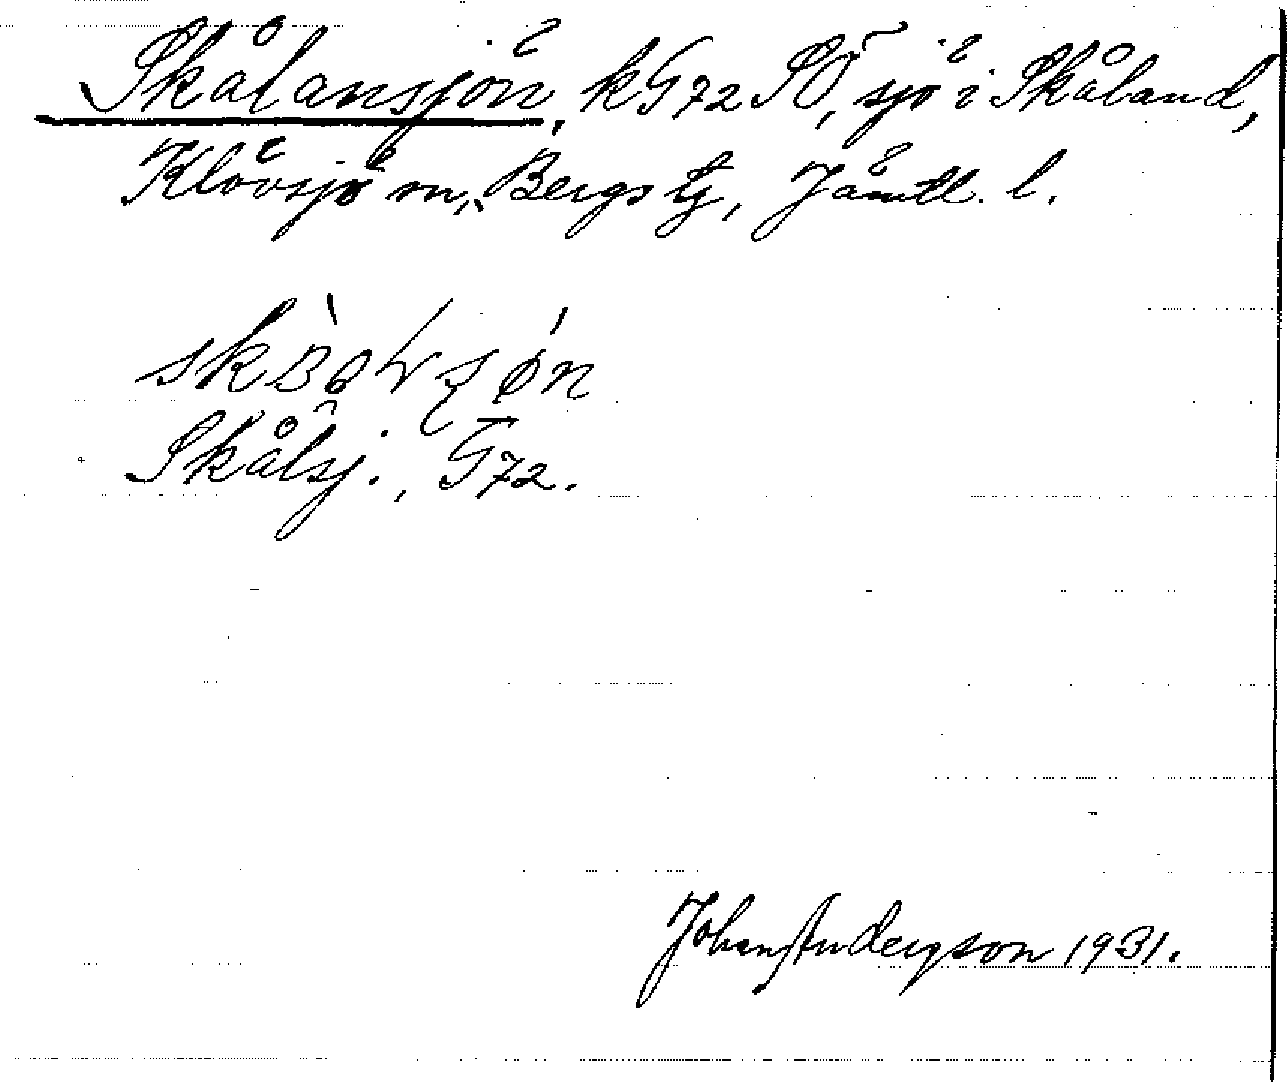 Skålansjön, kG72 SÖ, sjö i Skåland,
Klövsjö sn, Bergs tg, Jämtl. l.
Skålsj., G72.
Johan Anderson 1931.